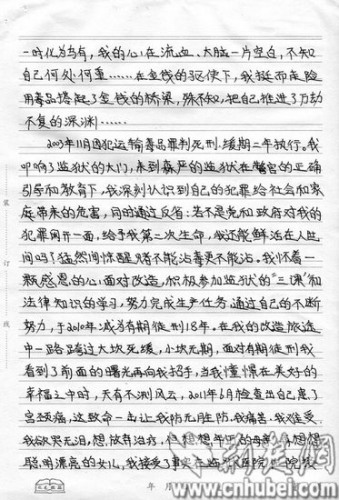 一时化为乌有，我的心在流血、大脑一片空白，不知
自己何处何重……在金钱的驱使下，我铤而走险
用毒品搭起了金钱的桥梁，殊不知，把自己推进了万劫
不复的深渊……
2003年11月因犯运输毒品罪判死刑，缓期二年执行。我
叩响了监狱的大门，来到森严的监狱在警官的正确
引导和教育下，我深刻认识到自己的犯罪给社会和家
庭带来的危害，同时通过反省：若不是党和政府对我的
犯罪网开一面，给予我第二次生命，我还能鲜活在人世
间吗？猛然间惊醒，赌不能沾毒更不能沾。我怀着一
颗感恩的心，面对改造，积极参加监狱的“三课”和
法律知识的学习，努力完成生产任务，通过自己的不断
努力，于2010年减为有期徒刑18年，在我的改造旅途
中一路跨过大坎死缓，小坎无期，面对有期徒刑我
看到了前面的曙光再向我招手，当我憧憬在美好的
幸福之中时，天有不测风云，2011年6月检查出自己患了
宫颈癌，这致命一击让我防无胜防，我痛苦、我难受、
我欲哭无泪，想放弃治疗，但想想年迈的母亲，想想聪
聪明漂亮的女儿，我接受了事实
装
订
线
年 月
荆楚网
www.cnhubei.com